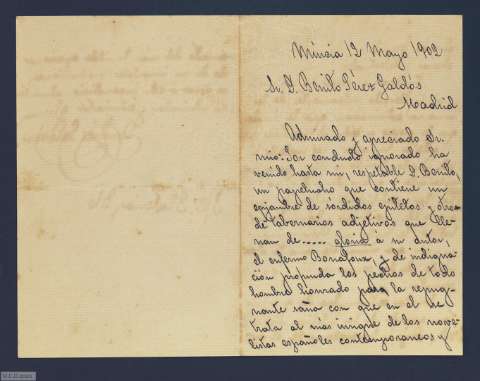 Murcia 12 Mayo 1902
Sr. D. Benito Pérez Galdós
Madrid
Admirado y apreciado Sr.
mio: Por conducto ignorado ha
venido hasta mi, respetable D. Benito,
un papelucho que contiene un
enjambre de sórdidos epítetos y otros
de tabernarios adjetivos que lle-
nan de ..... gloria a su autor,
el enfermo Bonafoux, y de indigna-
ción profunda los pechos de todo
hombre honrado para la repug-
nante saña con que en el se
trata al más insigne de los nove-
listas españoles contemporaneos y